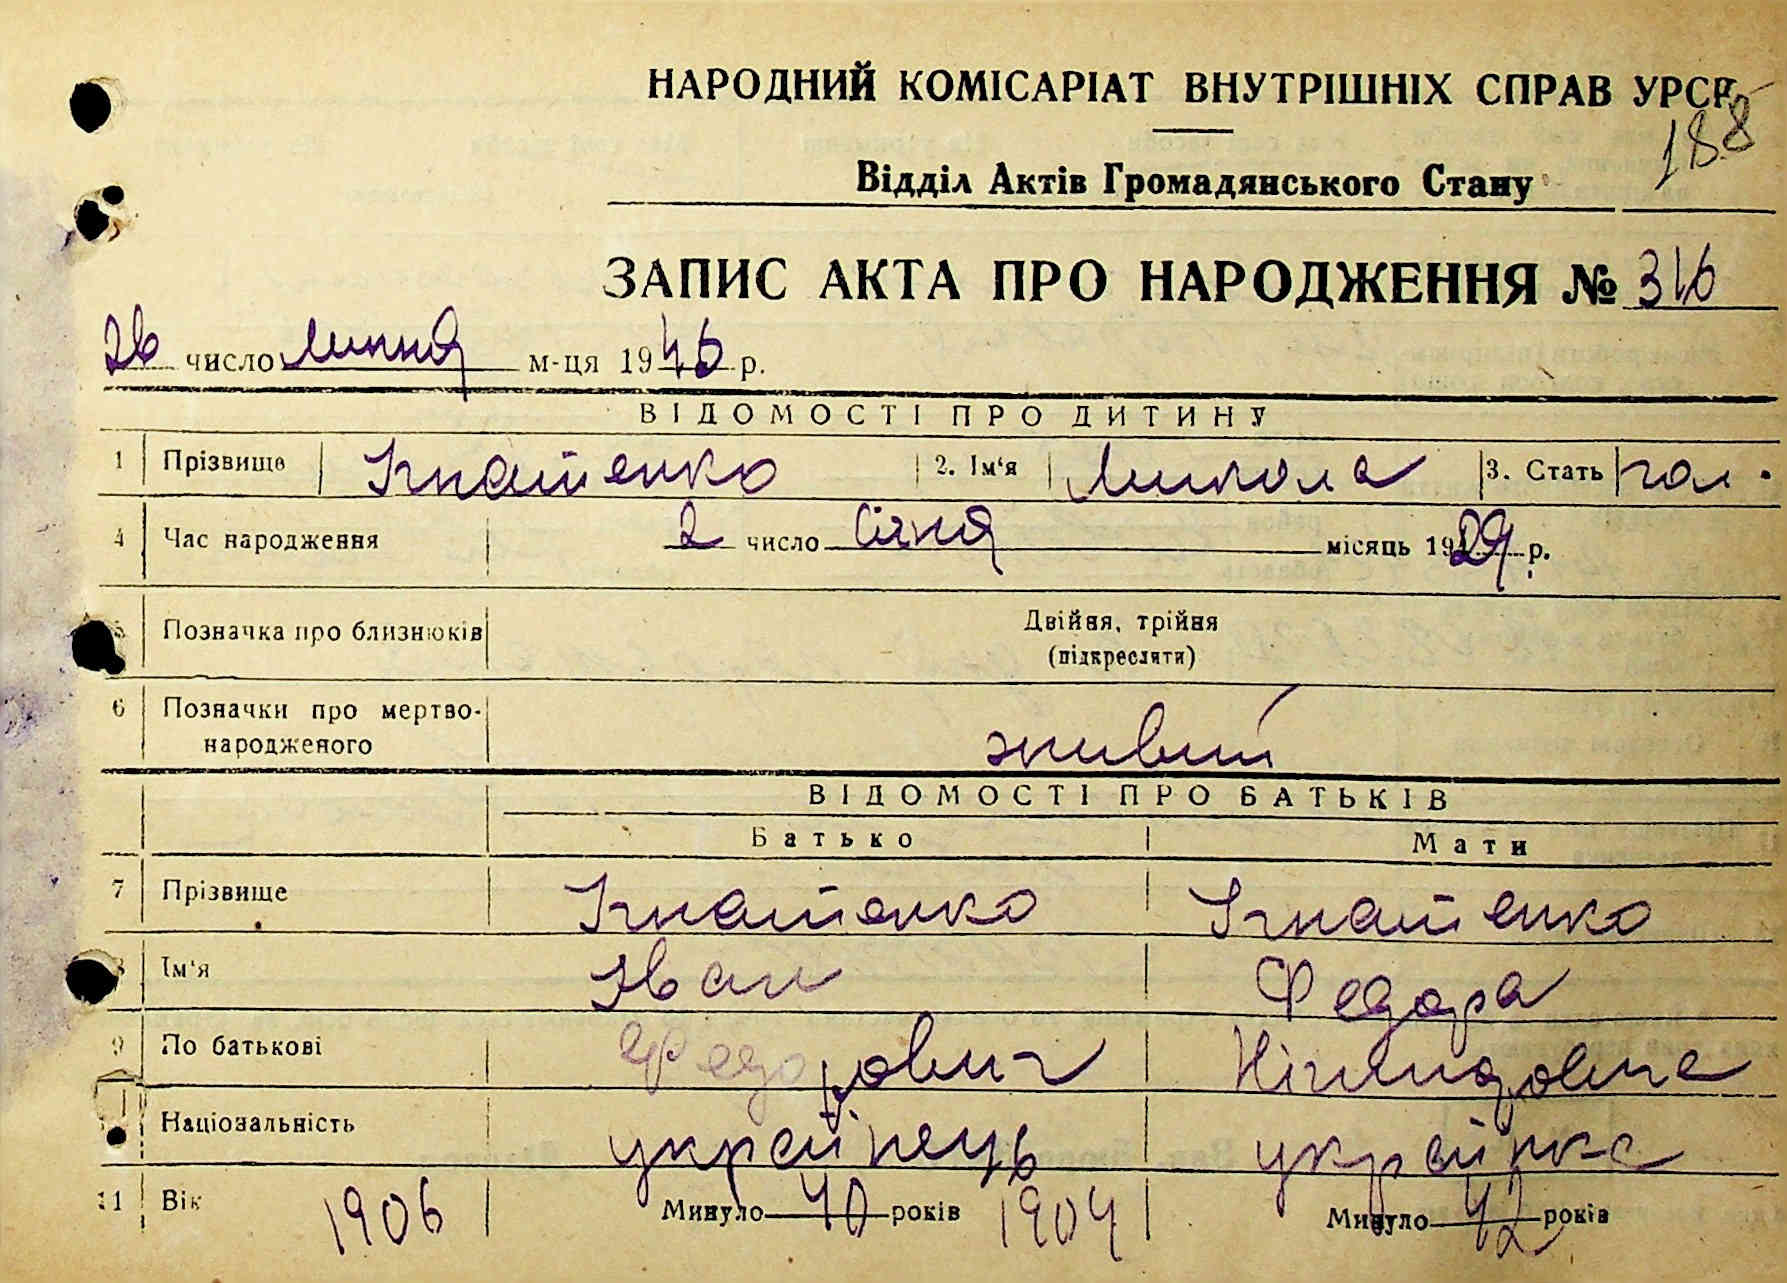 НАРОДНИЙ КОМІСАРІАТ ВНУТРІШНІХ СПРАВ УРСР
188
Відділ Актів Громадянського Стану
ЗАПИС АКТА ПРО НАРОДЖЕННЯ № 316
26 число липня м-ця 1946 р.
ВІДОМОСТІ ПРО ДИТИНУ
1 Прізвище Ігнатенко 2. Ім'я Микола 3. Стать чол.
4 Час народження 2 число січня місяць 1929 р.
5 Позначка про близнюків Двійня, трійня
(підкреслити)
6 Позначки про мертво-
народженого живий
ВІДОМОСТІ ПРО БАТЬКІВ
Батько Мати
7 Прізвище Ігнатенко Ігнатенко
8 Ім'я Іван Федора
9 По батькові Федорович
Національність українець українка
11 Вік 1906 Минуло 40 років 1904 Минуло 42 років